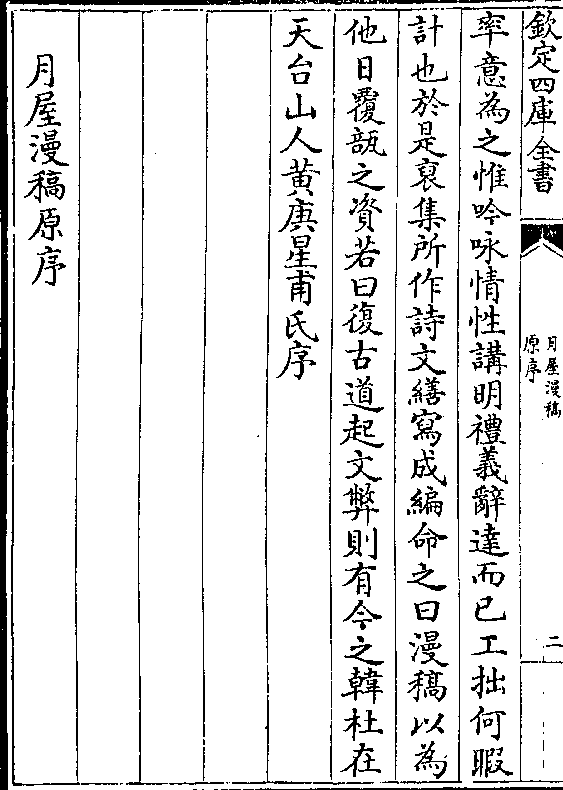 欽定四庫全書
月屋漫稿
原序
二
率意為之惟吟咏情性講明禮義辭達而已工拙何暇
計也於是裒集所作詩文繕寫成編命之曰漫稿以為
他日覆瓿之資若曰復古道起文弊則有今之韓杜在
天台山人黄庚星甫氏序
月屋漫稿原序